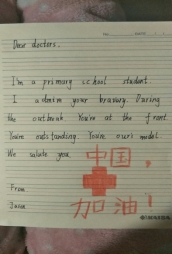 Dear doctors.
I'm a primary school student.
I admire your bravery. During
the outbreak You're at the front.
You're outstanding. You're ours model.
We salute you.
中国，
加油！
From
Jason